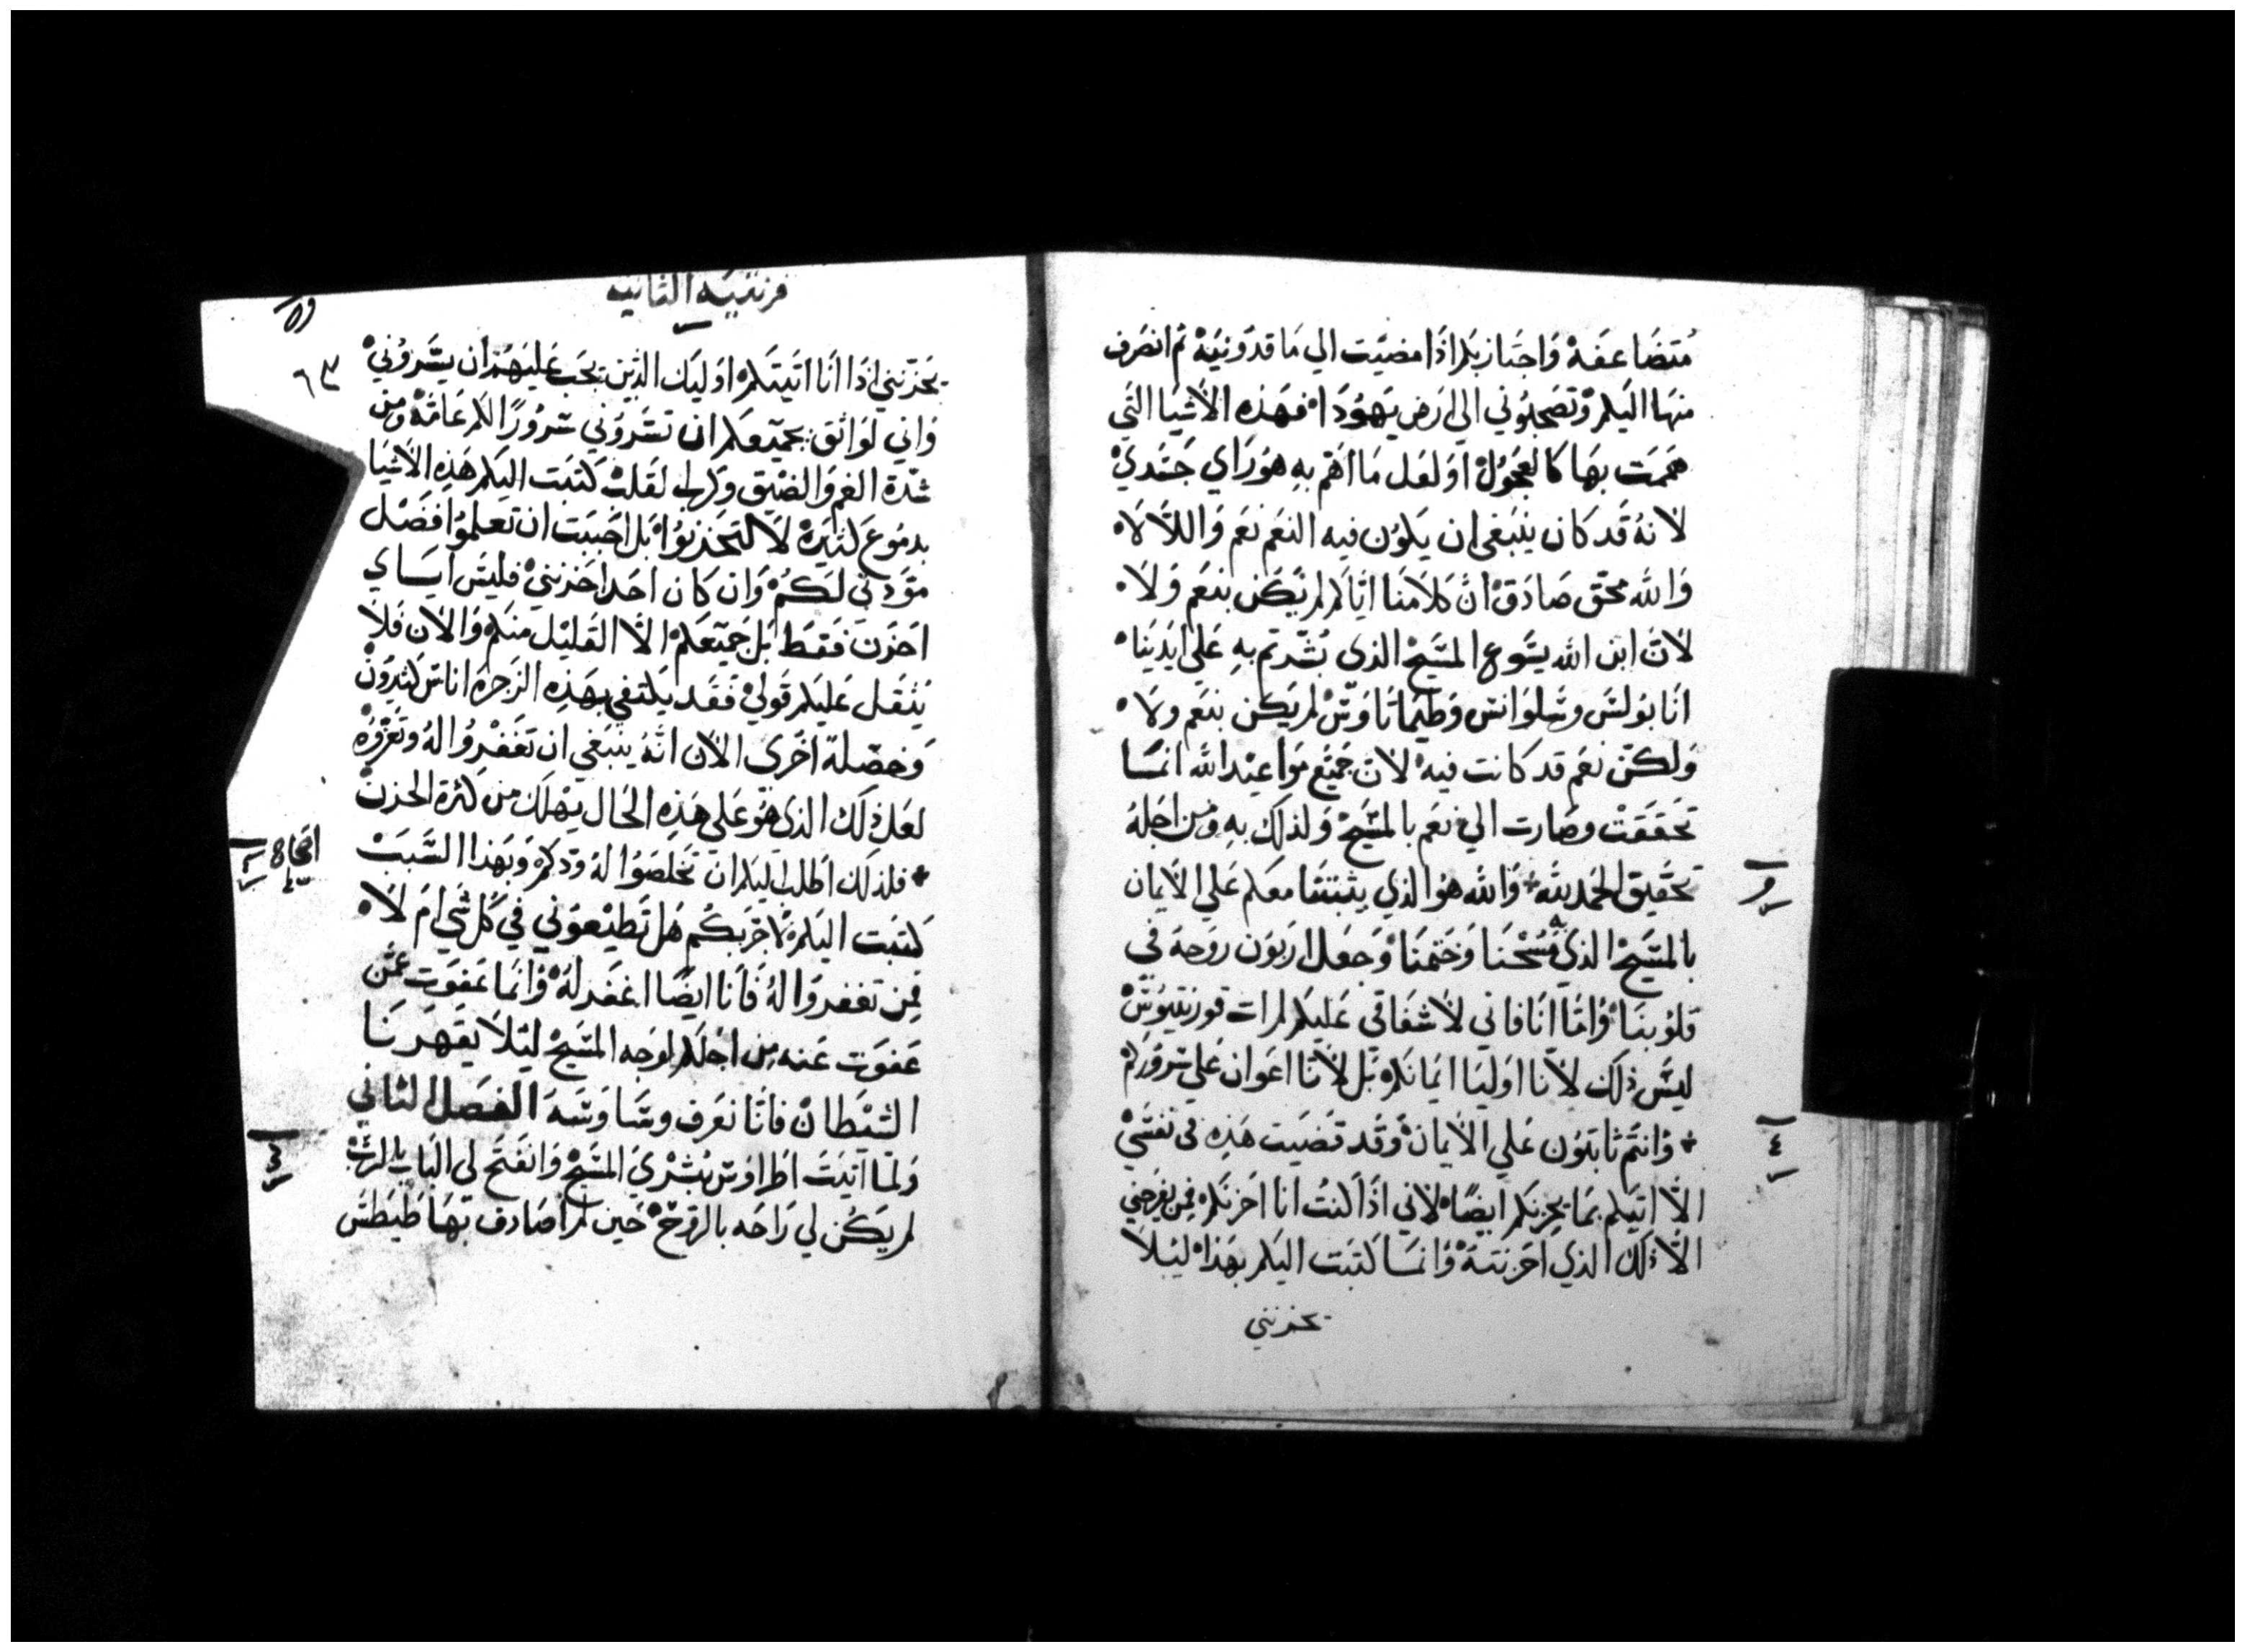 متضاعفة واجتاز بكم اذا مضيت الي ماقدونية ثم انصرف
منها اليكم وتصحبوني الي ارض يهودا فهذه الاشيا التي
هممت بها كالعجول او لعل ما اهم به هو راي جسدي
لانه قد كان ينبغي ان يكون فيه النعم نعم واللا لا
والله محق صادق ان كلامنا اياكم لم يكن بنعم ولا
لان ابن الله يسوع المسيح الذي بشرتم به علي ايدينا
انا بولس وسلوانس وطيماتاوس لم يكن بنعم ولا
ولكن نعم قد كانت فيه لان جميع مواعيد الله انما
تحققت وصارت الي نعم بالمسيح ولذلك به ومن اجله
تحقيق الحمد لله والله هو الذي يثبتنا معكم علي الايمان
بالمسيح الذي مسحنا وختمنا وجعل اربون روحه في
قلوبنا واما انا فاني لاشفاقي عليكم لم ات قورنتيوس
ليس ذلك لانا اوليا ايمانكم بل لانا اعوان علي سروركم
وانتم ثابتون علي الايمان وقد قضيت هذه في نفسي
الا اتيكم بما يحزنكم ايضا لاني اذا كنت انا احزنكم فمن يفرحني
الا ذلك الذي احزنته وانما كتبت اليكم بهذا ليلا
تحزنني
٤
قرنتيه الثانيه
٦٣
تحزنني اذا انا اتيتكم اوليك الذين يجب عليهم ان يسروني
واني لواثق بجميعكم ان تسروني سرورا لكم عامة ومن
شدة الغم والضيق وكرب لقلب كتبت اليكم هذه الاشيا
بدموع كثيرة لا لتحزنوا بل احببت ان تعلموا افضل
مودتي لكم وان كان احد احزنني فليس اياي
احزن فقط بل جميعكم الا القليل منكم والان فلا
يثقل عليكم قولي فقد يكتفي بهذه الزجرة اناس كثيرون
وخصلة اخري الان انه ينبغي ان تغفروا له وتعزوه
لعل ذلك الذي هو علي هذه الحال يهلك من كثرة الحزن
فلذلك اطلب اليكم ان تخلصوا له ودكم وبهذا السبب
كتبت اليكم لاجربكم هل تطيعوني في كل شي ام لا
فمن تغفروا له فانا ايضا اغفر له وانما عفوت عمن
عفوت عنه من اجلكم لوجه المسيح ليلا يقهرنا
الشيطان فانا نعرف وساوسه الفصل الثاني
ولما اتيت اطراوس ببشري المسيح وانفتح لي الباب بالرب
لم يكن لي راحه بالروح حين لم اصادف بها طيطس